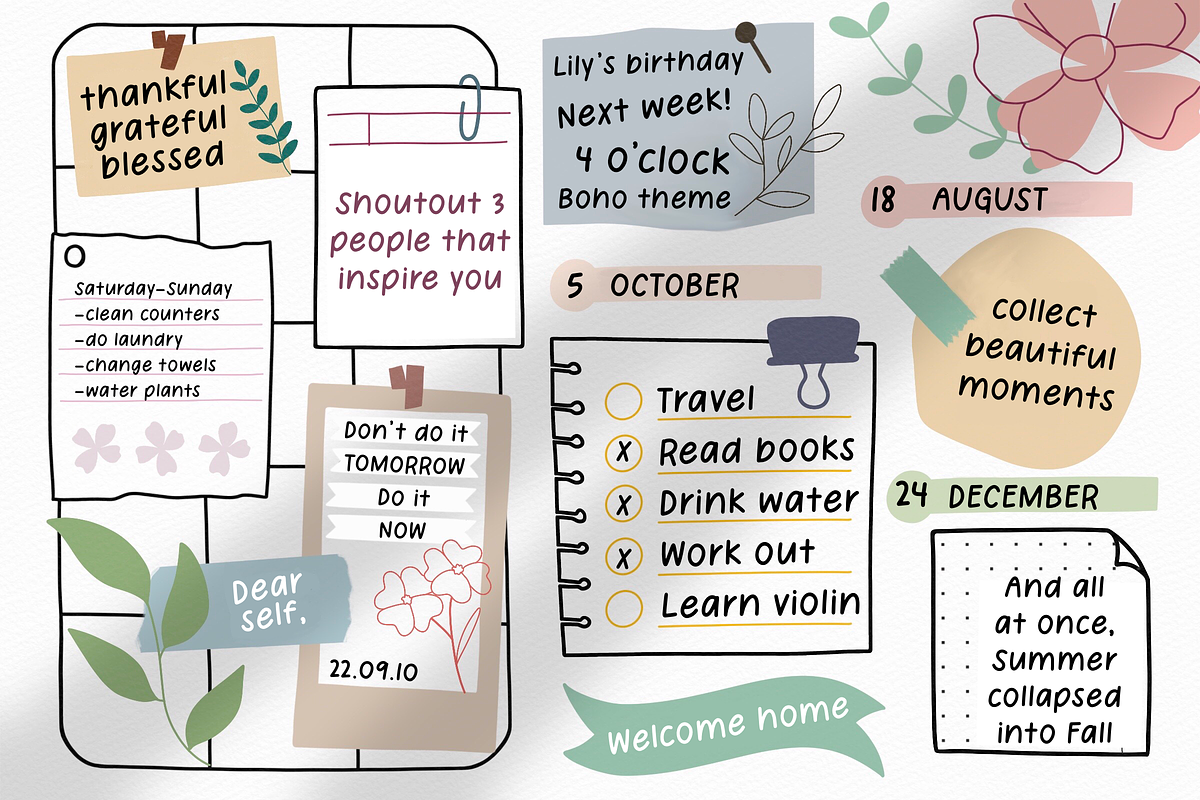 thankful
grateful
blessed
Shoutout 3
people that
inspire you
Saturday-Sunday
-clean counters
-do laundry
-change towels
-water plants
Don't do it
TOMORROW
Do it
NOW
22.09.10
Dear
self,
Lily's birthday
Next week!
4 O'clock
Boho theme
5 OCTOBER
Travel
x Read books
x Drink water
x Work out
Learn violin
welcome home
18 AUGUST
collect
beautiful
moments
24 DECEMBER
And all
at once,
summer
collapsed
into Fall